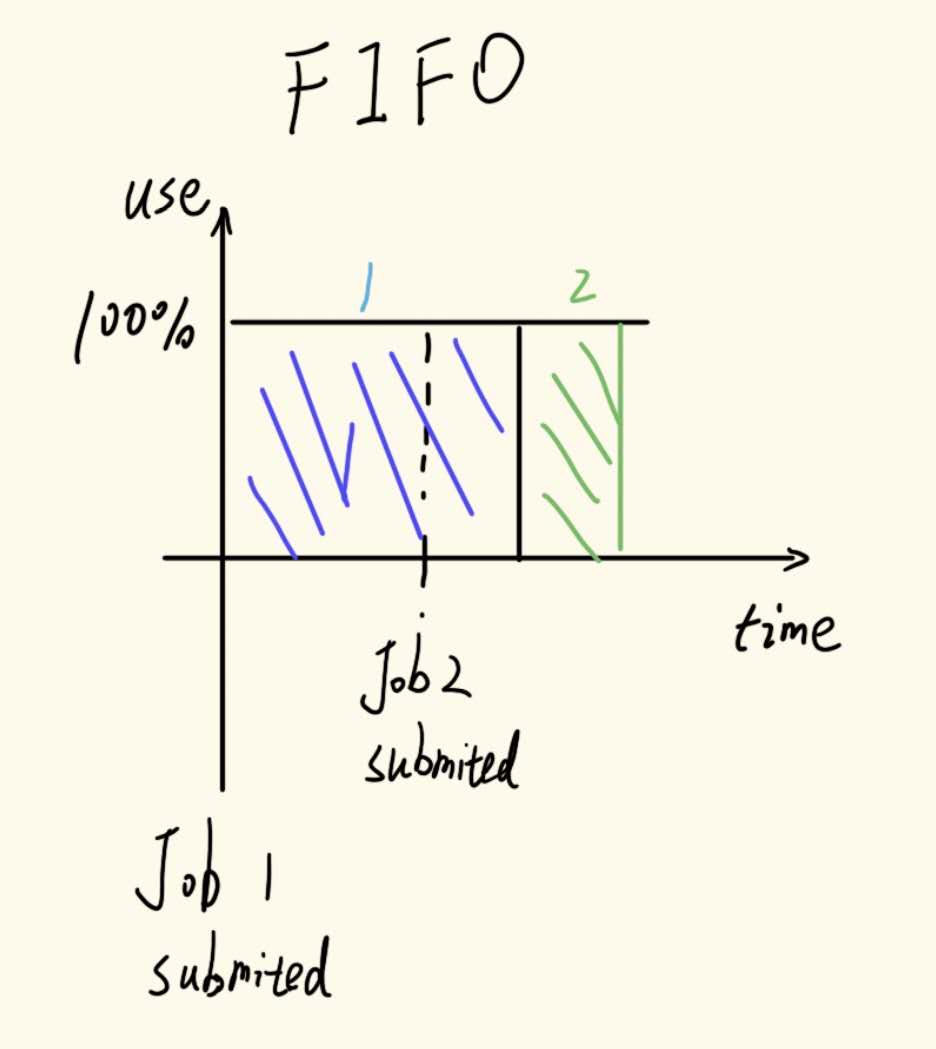 FIFO
use
100%
1
2
time
Job 2
submited
Job 1
submited